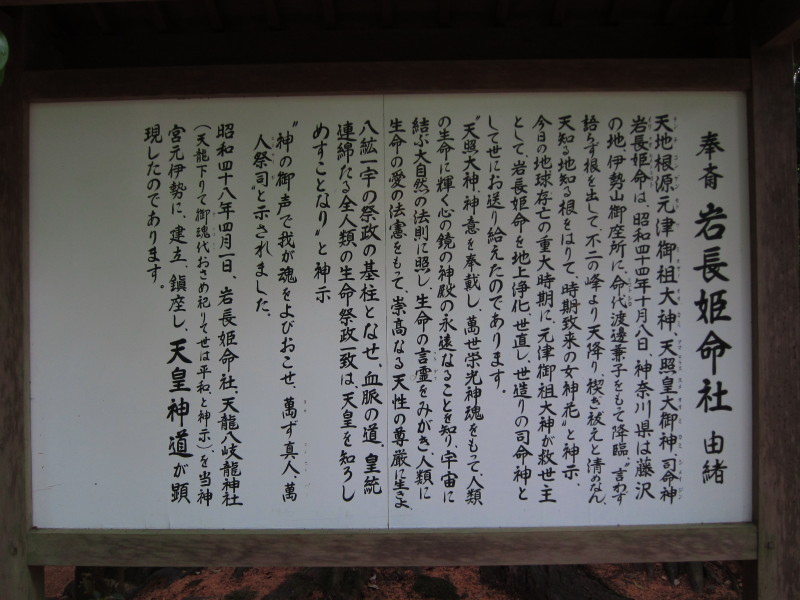 奉斎 岩長姫命社 由緒
天地根源元津御祖大神、天照皇大御神、司命神
岩長姫命は、昭和四十四年十月八日、神奈川県は藤沢
の地、伊勢山御座所に、命代渡邊兼子をもて降臨、〝言わず
語らず根を出して、不二の峰より天降り、禊ぎ祓えと清めなん、
天知る地知る根をはりて、時期致来の女神花〟と神示、
今日の地球存亡の重大時期に、元津御祖大神が救世主
として、岩長姫命を地上浄化、世直し、世造りの司命神と
して世にお送り給えたのであります。
〝天照大神、神意を奉戴し、萬世栄光神魂をもって、人類
の生命に輝く心の鏡の神殿の永遠なることを知り、宇宙に
結ぶ大自然の法則に照し、生命の言霊をみがき、人類に
生命の愛の法憲をもって、崇高なる天性の尊厳に生きよ、
八紘一宇の祭政の基柱となせ、血脈の道、皇統
連綿たる全人類の生命祭政一致は、天皇を知ろし
めすことなり〟と神示
〝神の御声で我が魂をよびおこせ、萬ず真人、萬
人祭司〟と示されました。
昭和四十八年四月一日、岩長姫命社、天龍八岐龍神社
（天龍下りて御魂代おさめ祀りて世は平和と神示）を当神
宮元伊勢に、建立、鎮座し、天皇神道が顕
現したのであります。